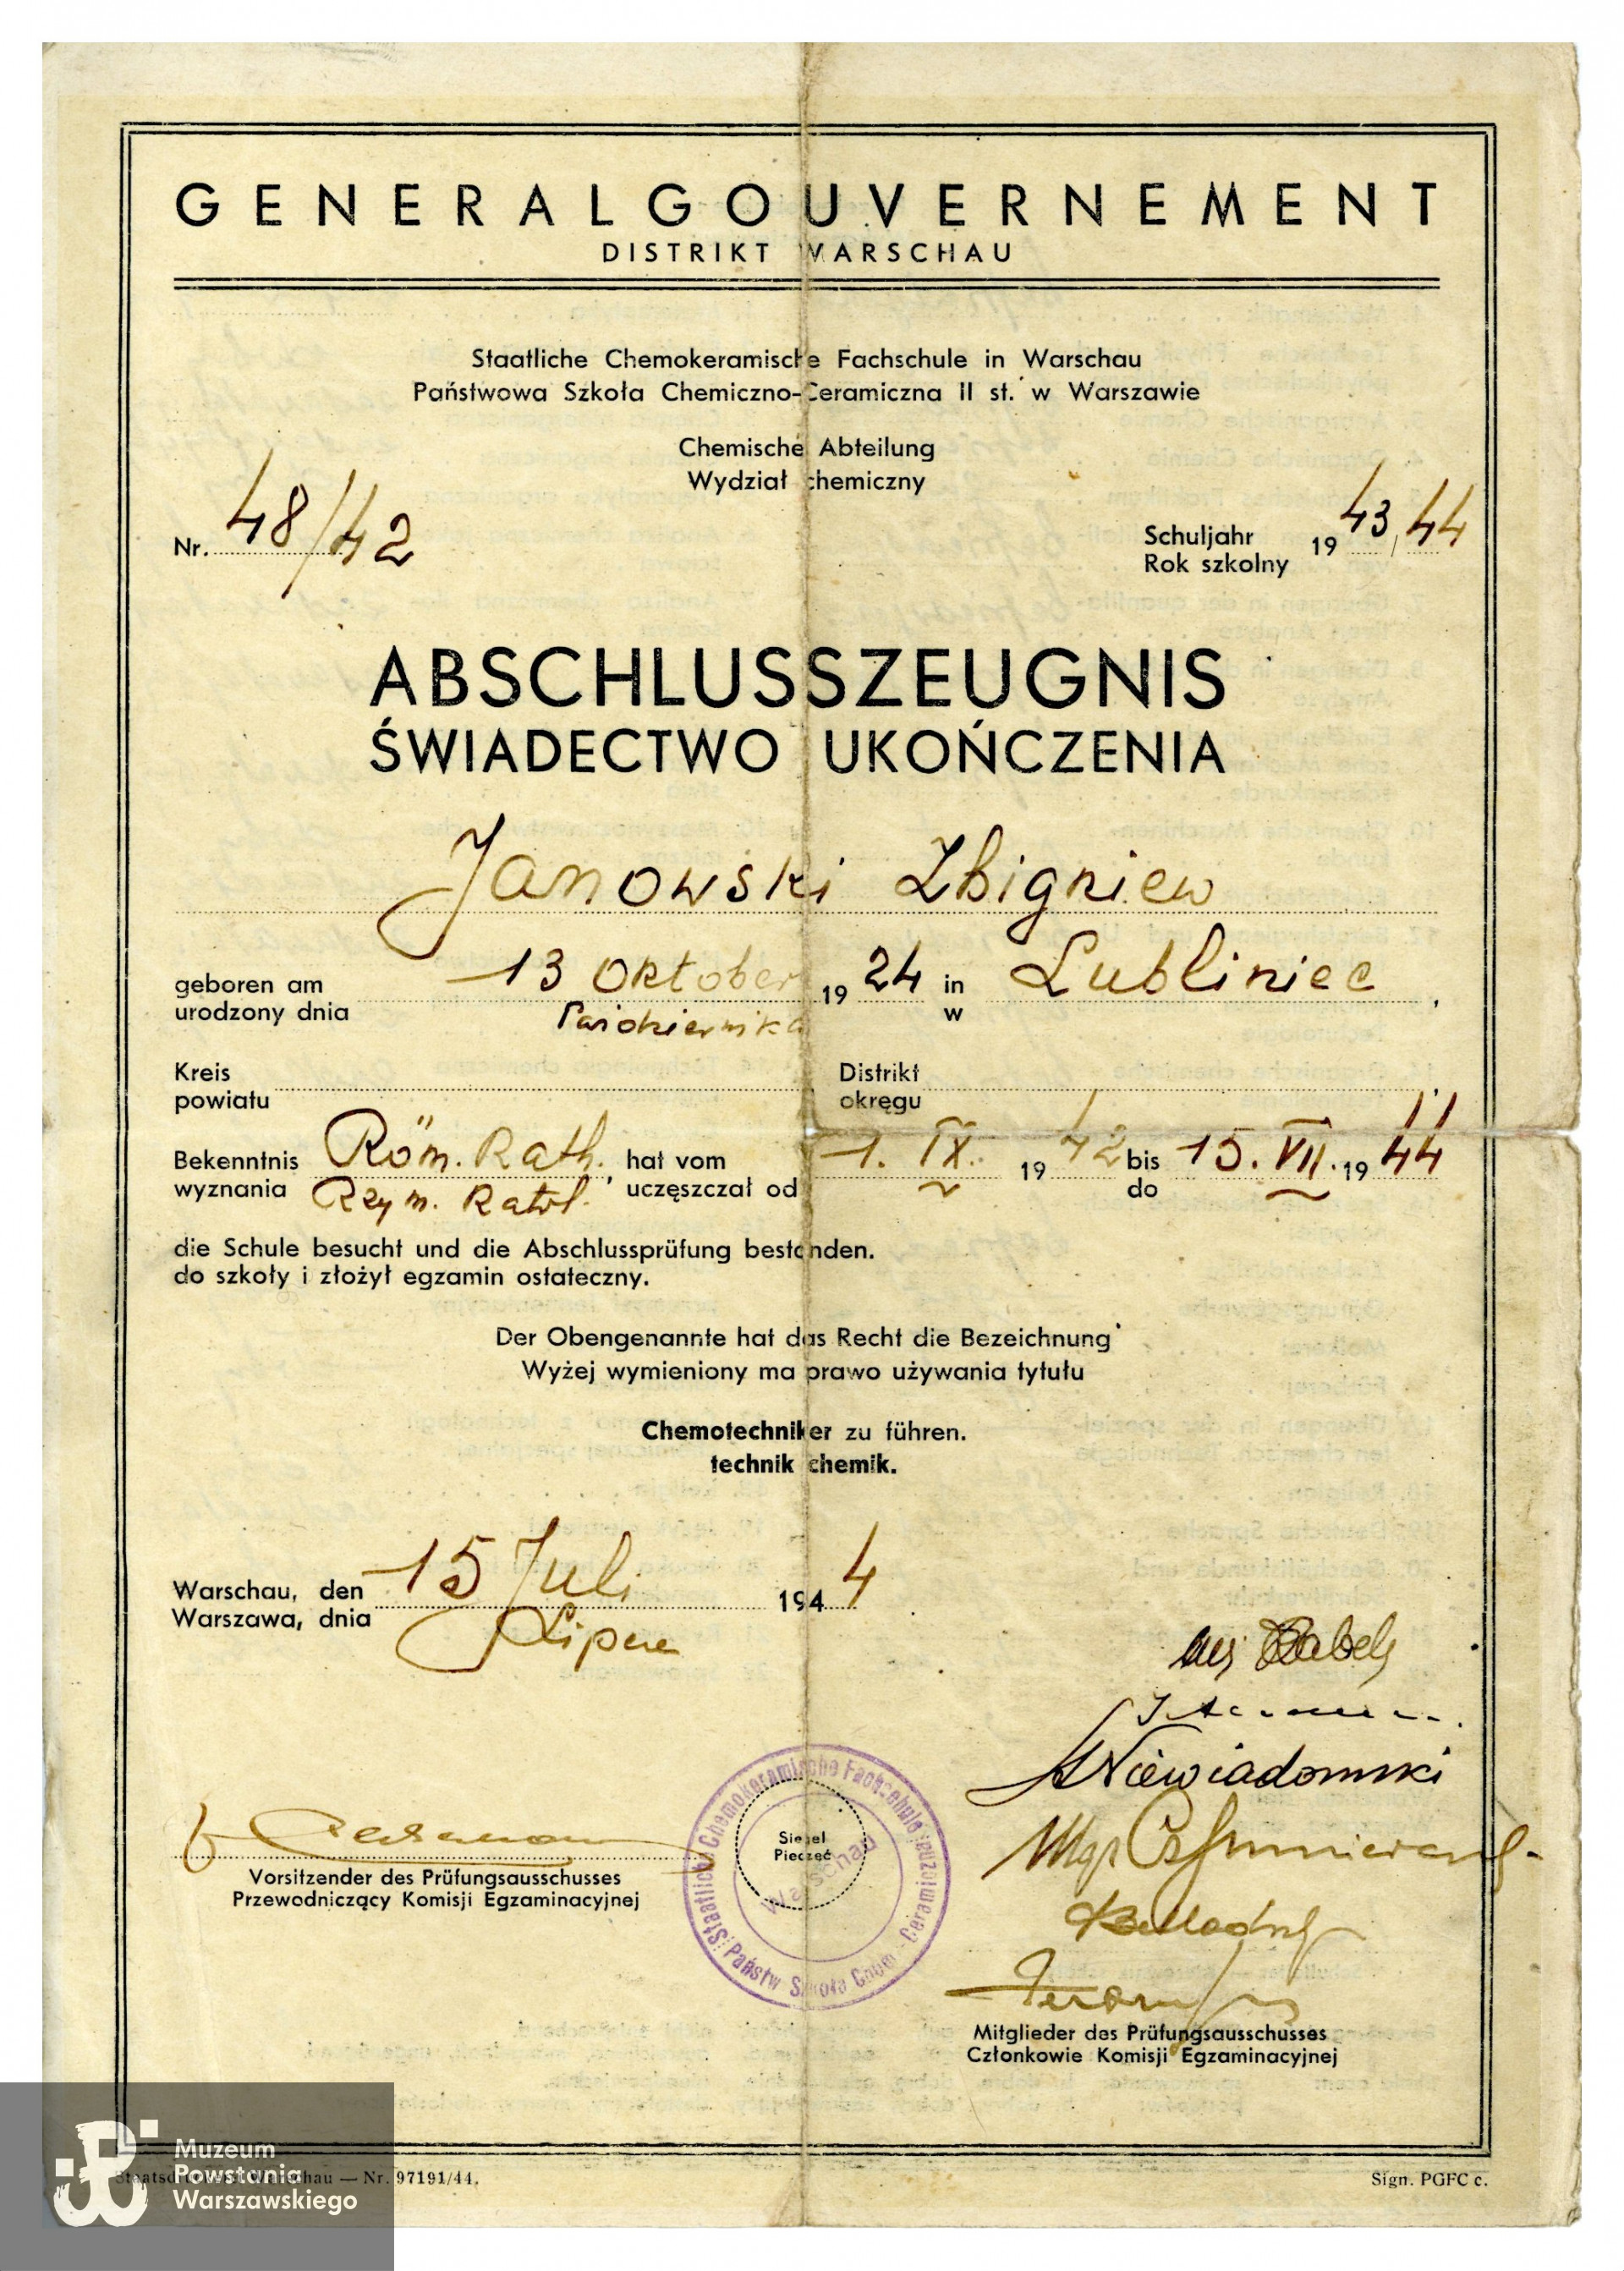 GENERALGOUVERNEMENT
DISTRIKT WARSCHAU
Staatliche Chemokeramische Fachschule in Warschau
Państwowa Szkoła Chemiczno-Ceramiczna II st. w Warszawie
Chemische Abteilung
Wydział chemiczny
Nr. 48/42
Schuljahr 1943/44
Rok szkolny
ABSCHLUSSZEUGNIS
ŚWIADECTWO UKOŃCZENIA
Janowski Zbigniew
geboren am 13 Oktober 1924 in Lubliniec,
urodzony dnia Października w
Kreis Distrikt
powiatu okręgu
Bekenntnis Röm. Kath., hat vom 1. IX. 1942 bis 15. VII. 1944
wyznania Rzym. Katol. uczęszczał od do
die Schule besucht und die Abschlussprüfung bestanden.
do szkoły i złożył egzamin ostateczny.
Der Obengenannte hat das Recht die Bezeichnung
Wyżej wymieniony ma prawo używania tytułu
Chemotechniker zu führen.
technik chemik.
Warschau, den 15 Juli 1944
Warszawa, dnia Lipca
Niewiadomski
Mgr
Siegel
Pieczęć
Staatliche Chemokeramische Fachschule
Państw Szkoła Chem.-Ceramiczna
Warschau
Vorsitzender des Prüfungsausschusses
Przewodniczący Komisji Egzaminacyjnej
Mitglieder des Prüfungsausschusses
Członkowie Komisji Egzaminacyjnej
Staatsdruckerei Warschau — Nr. 97191/44.
Sign. PGFC c.
Muzeum
Powstania
Warszawskiego